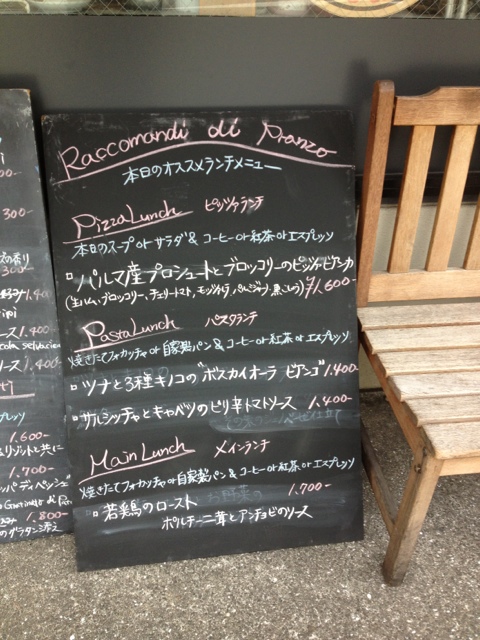 300-
の香り
300-
ipi
1.400-
ース 1.400-
ola selvatica
ソース) 1.400-
プレッソ
1.600-
リゾットと共に
1.700-
1.800-
のグラタン添え
Raccomandi di Pranzo
本日のオススメランチメニュー
Pizza Lunch ピッツァランチ
本日のスープ or サラダ & コーヒー or 紅茶 or エスプレッソ
パルマ産プロシュートとブロッコリーのピッツァ・ビアンカ
(生ハム、ブロッコリー、チェリートマト、モッツァレラ、パルミジャーノ、黒こしょう) ¥1.600-
Pasta Lunch パスタランチ
焼きたてフォカッチャ or 自家製パン & コーヒー or 紅茶 or エスプレッソ
ツナと3種キノコの"ボスカイオーラ ビアンコ" 1.400-
サルシッチャとキャベツのピリ辛トマトソース 1.400-
Main Lunch メインランチ
焼きたてフォカッチャ or 自家製パン & コーヒー or 紅茶 or エスプレッソ
若鶏のロースト 1.700-
ポルチーニ茸とアンチョビのソース